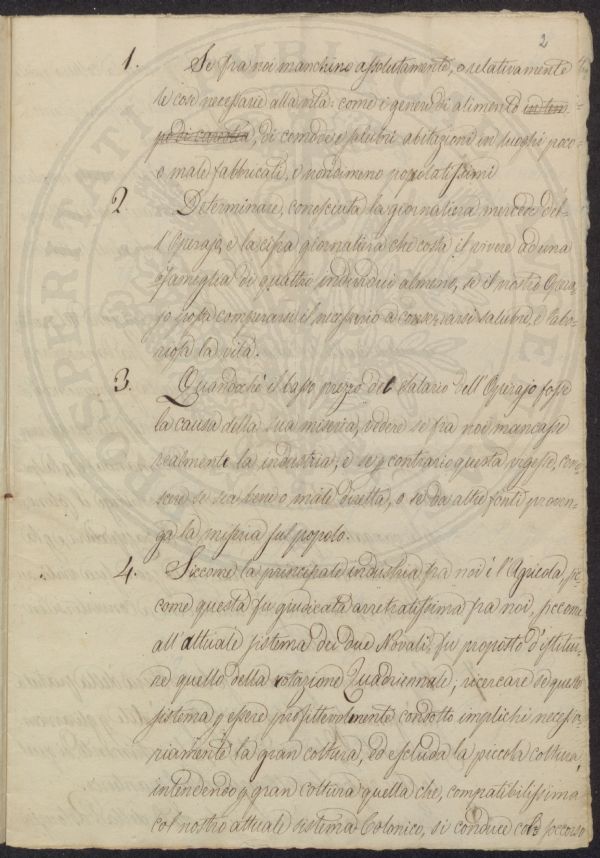 2
1. Se fra noi manchino assolutamente, o relativamente
le cose necessarie alla vita: come i generi di alimento in tem-
po di carestia, di comode e salubri abitazioni in luoghi poco
o male fabbricati, e nondimeno popolatissimi
2. Determinare, conosciuta la giornaliera mercede del-
l'Operajo, e la cifra giornaliera che costa il vivere ad una
famiglia di quattro individui almeno, se il nostro Opera-
jo possa comperarsi il necessario a conservarsi salubre, e labo-
riosa la vita.
3. Quandoché il basso prezzo del Salario dell'Operajo fosse
la causa della sua miseria, vedere se fra noi mancasse
realmente la industria, e se p contrario questa vigesse, cono-
scere se sia bene o male diretta, o se da altre fonti proven-
ga la miseria sul popolo.
4. Siccome la principale industria fra noi è l'Agricola, sic-
come questa fu giudicata arretratissima fra noi, siccome
all'attuale sistema dei due Novali, fu proposto d'istitui-
re quello della rotazione Quadriennale; ricercare se questo
sistema p essere profittevolmente condotto implichi necessa-
riamente la gran coltura, ed escluda la piccola coltura,
intendendo p gran coltura quella che, compatibilissima
col nostro attuale sistema Colonico, si conduce col soccorso
PROSPERITATI PUBLICAE